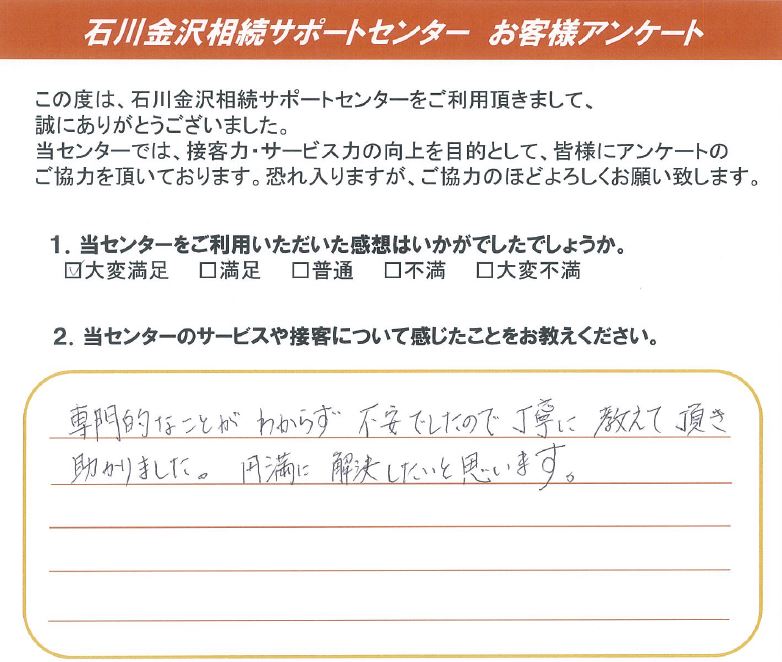 石川金沢相続サポートセンター お客様アンケート
この度は、石川金沢相続サポートセンターをご利用頂きまして、
誠にありがとうございました。
当センターでは、接客力・サービス力の向上を目的として、皆様にアンケートの
ご協力を頂いております。恐れ入りますが、ご協力のほどよろしくお願い致します。
1. 当センターをご利用いただいた感想はいかがでしたでしょうか。
☑大変満足 □満足 □普通 □不満 □大変不満
2. 当センターのサービスや接客について感じたことをお教えください。
専門的なことが わからず 不安でしたので 丁寧に 教えて 頂き
助かりました。 円満に 解決したいと思います。